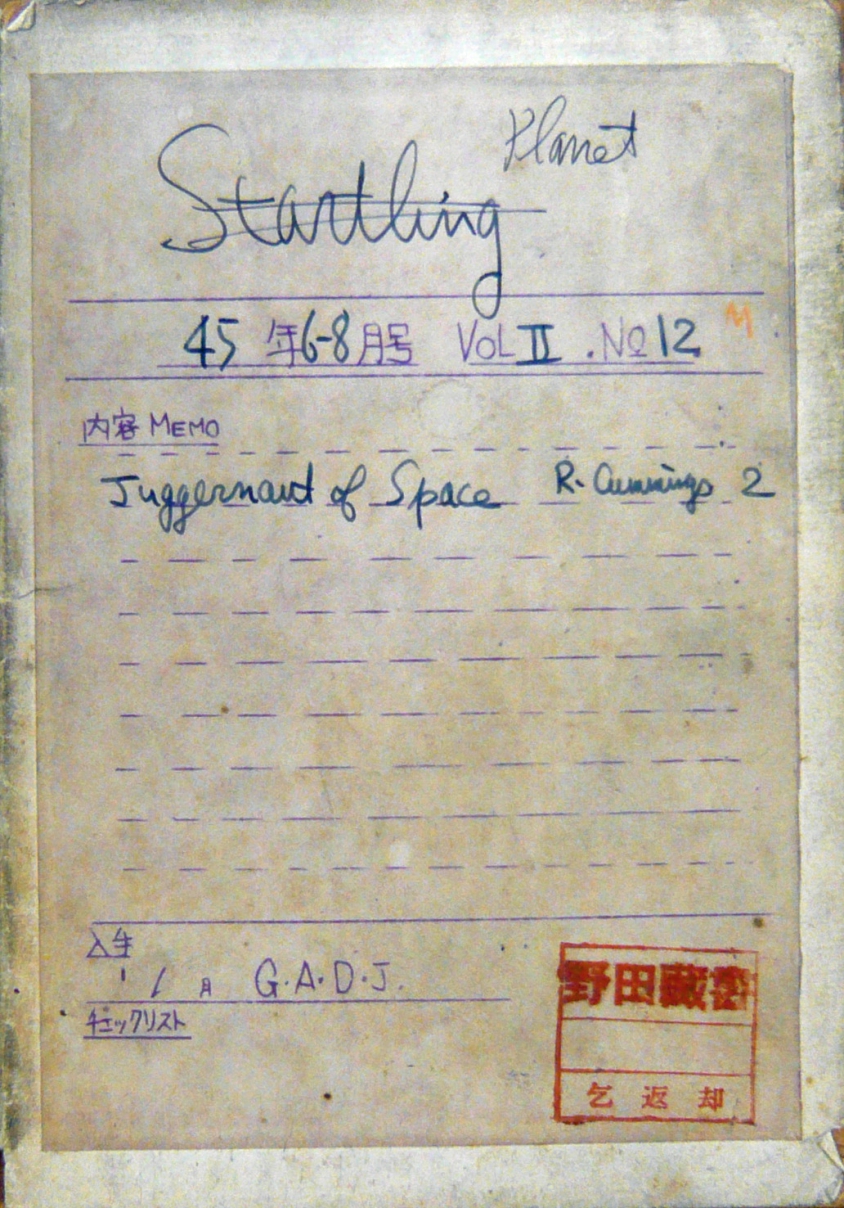 Planet
Startling
45 年 6-8 月号 VOL II . No 12
M
内容 MEMO
Juggernaut of Space R. Cummings 2
入手
' / 月 G.A.D.J.
チェックリスト
野田蔵書
乞返却